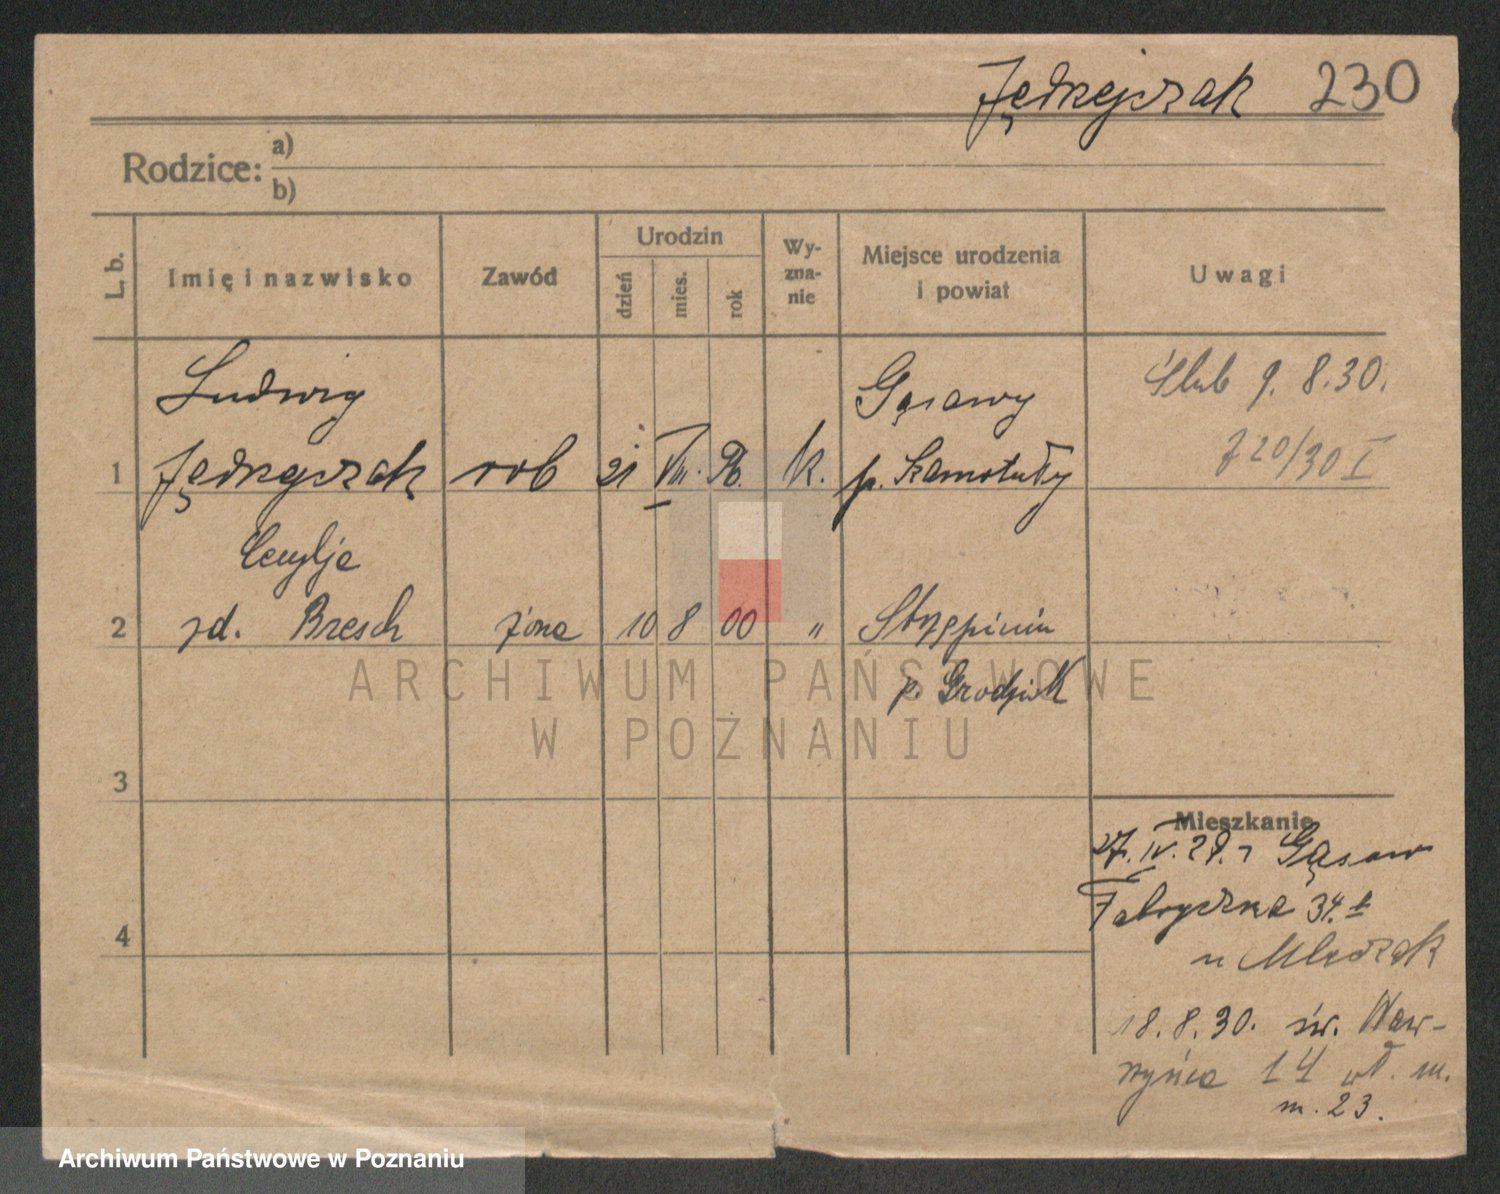 Jędrzejczak 230
Rodzice: a)
b)
L. b.
Imię i nazwisko
Zawód
Urodzin
dzień
mies.
rok
Wy-
zna-
nie
Miejsce urodzenia
i powiat
Uwagi
Ludwig
Gąsawy
Ślub 9. 8. 30.
1 Jędrzejczak rob 21 VIII. 96. k. p. Szamotuły
720/30 I
Cecylja
2 zd. Bresch żona 10 8 00 " Strzępiniu
p. Grodzisk
3
4
Mieszkanie
27. IV. 28. z Gąsaw
Fabryczna 34.
u Mleczak
18. 8. 30. św. Waw-
rzyńca 14 wł. m.
m. 23.
ARCHIWUM PAŃSTWOWE
W POZNANIU
Archiwum Państwowe w Poznaniu